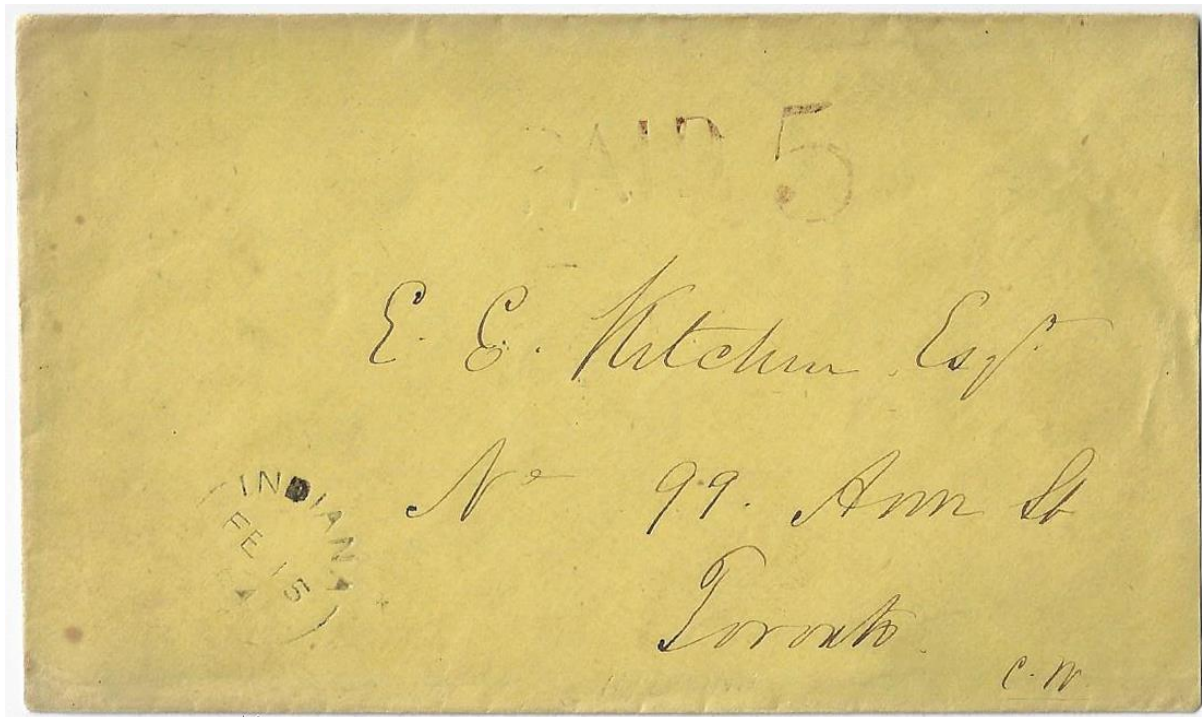 PAID 5
E. E. Kitchen Esqr.
No 99. Ann St
Toronto.
C. W.
INDIANA
FE 15